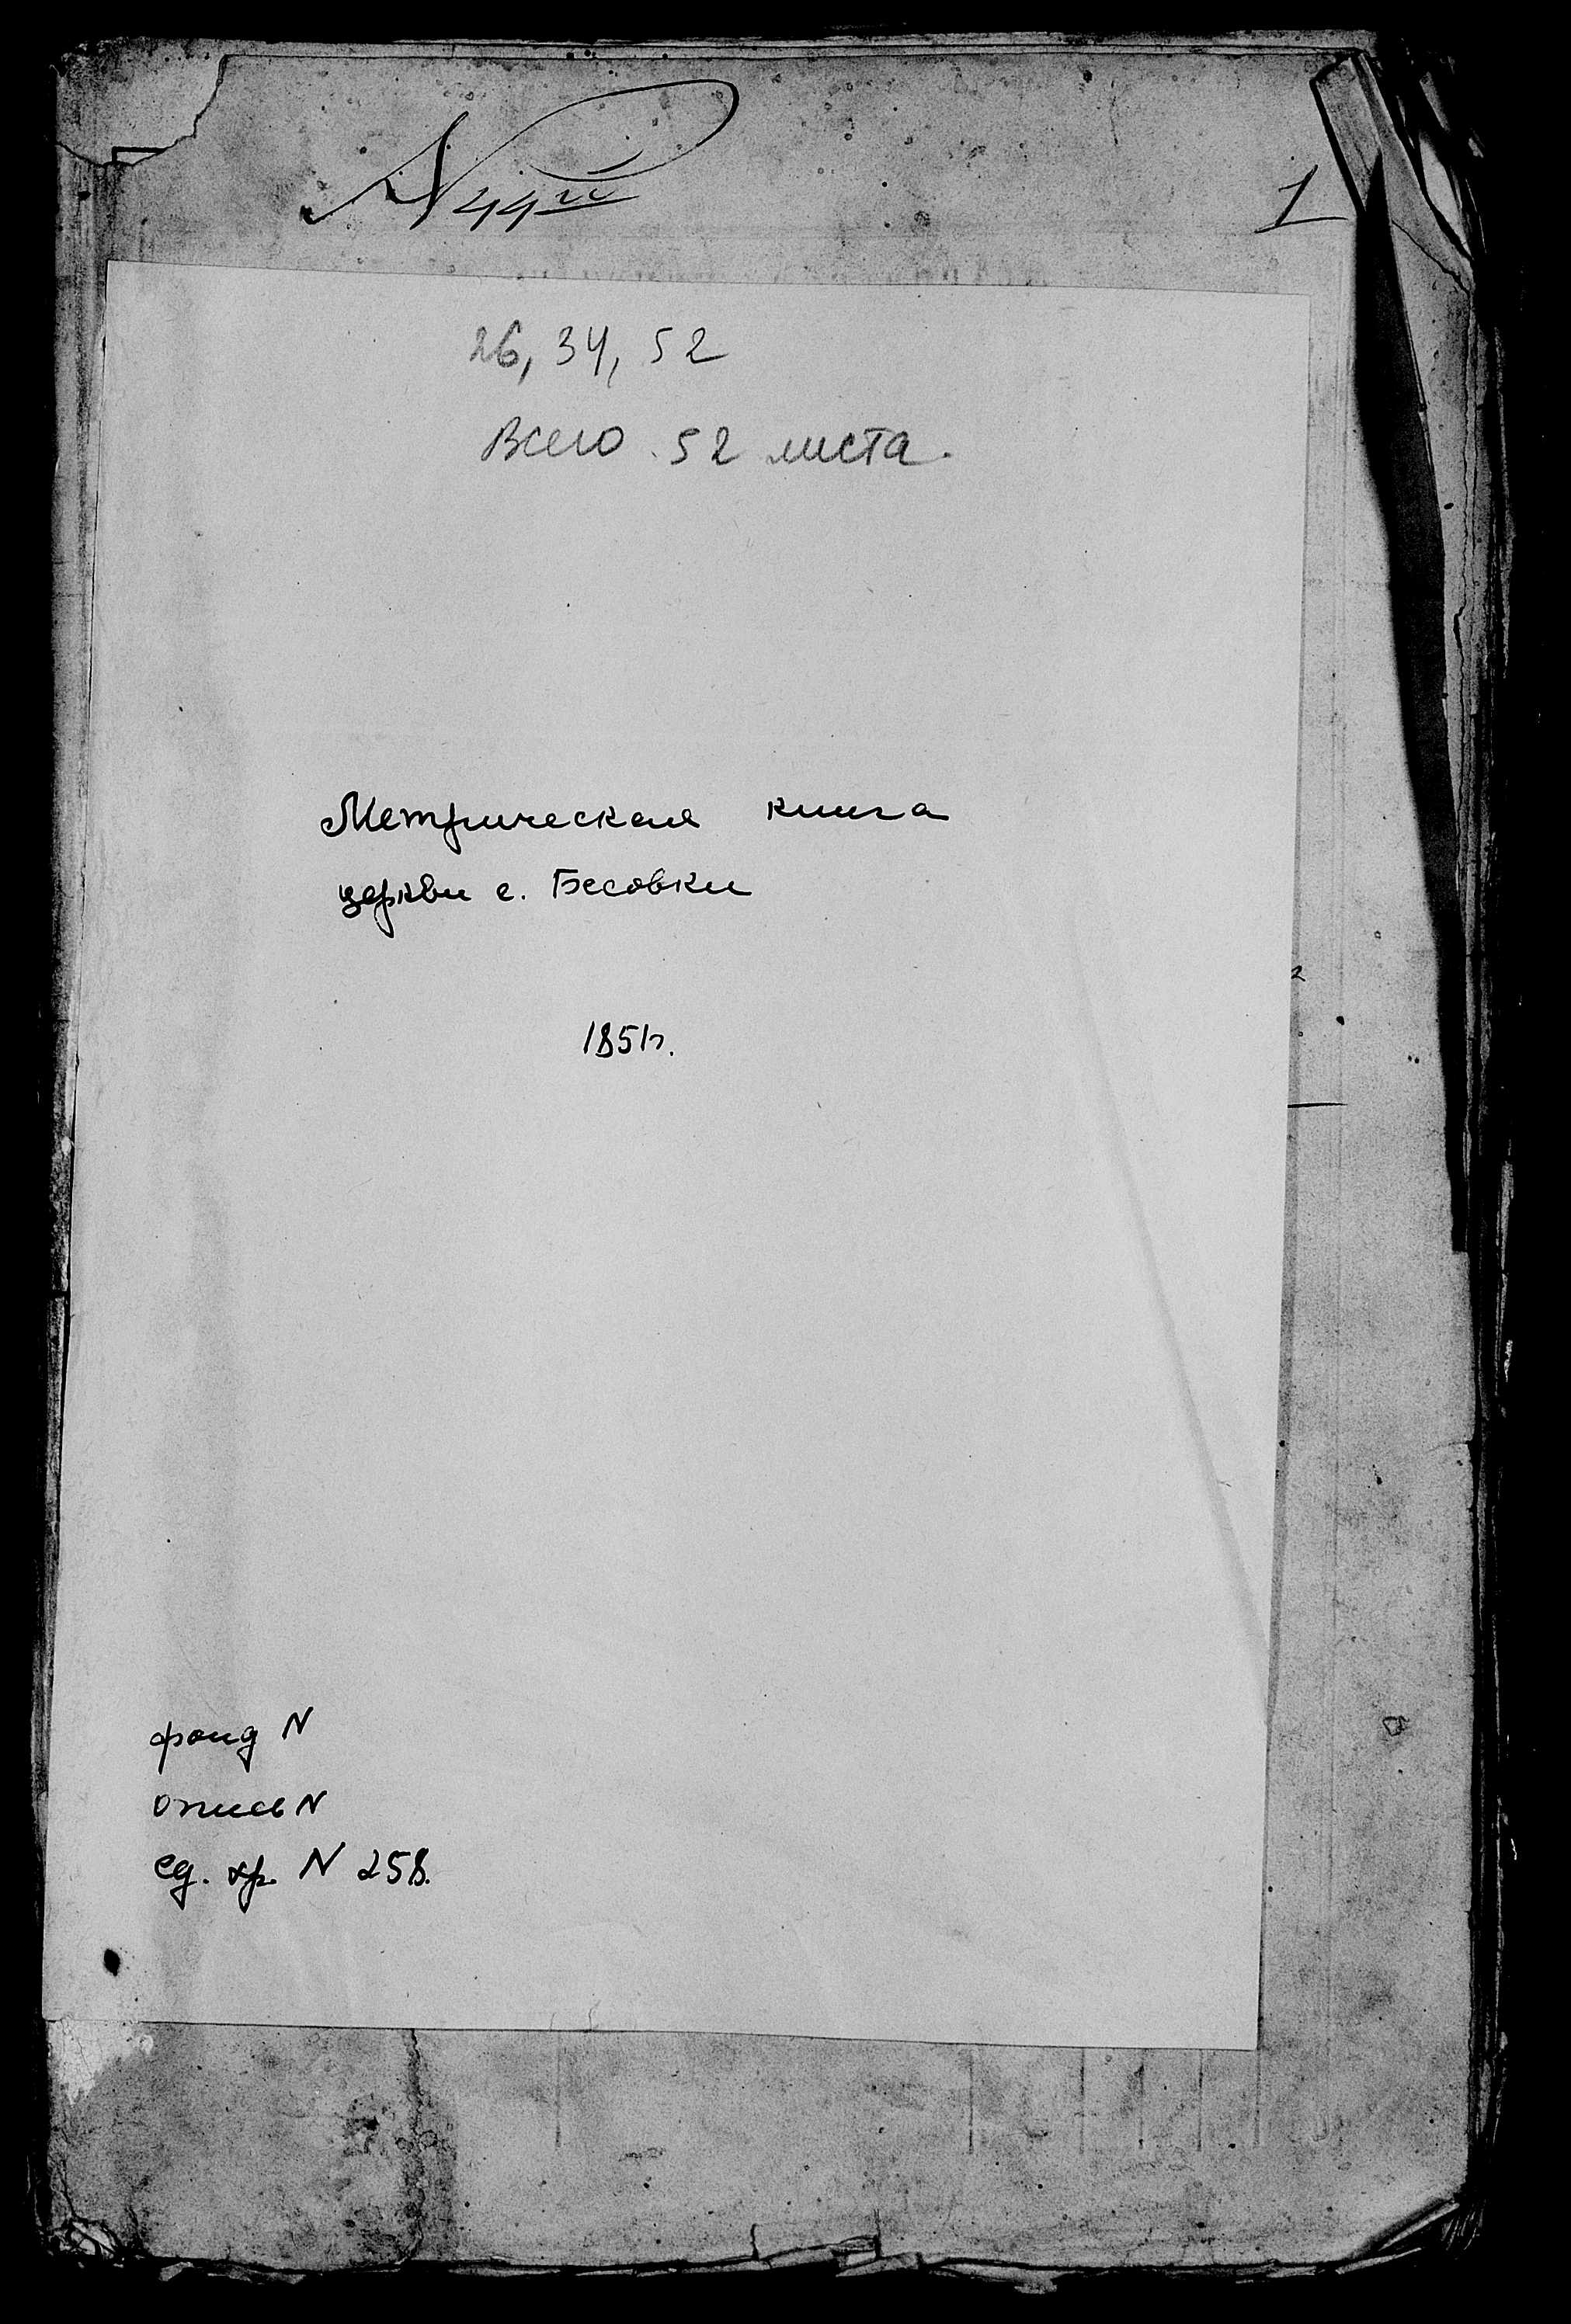 N 44го
1
26, 34, 52
Всего 52 листа.
Метрическая книга
церкви с. Бесовки
1851г.
фонд N
опись N
ед. хр. N 258.